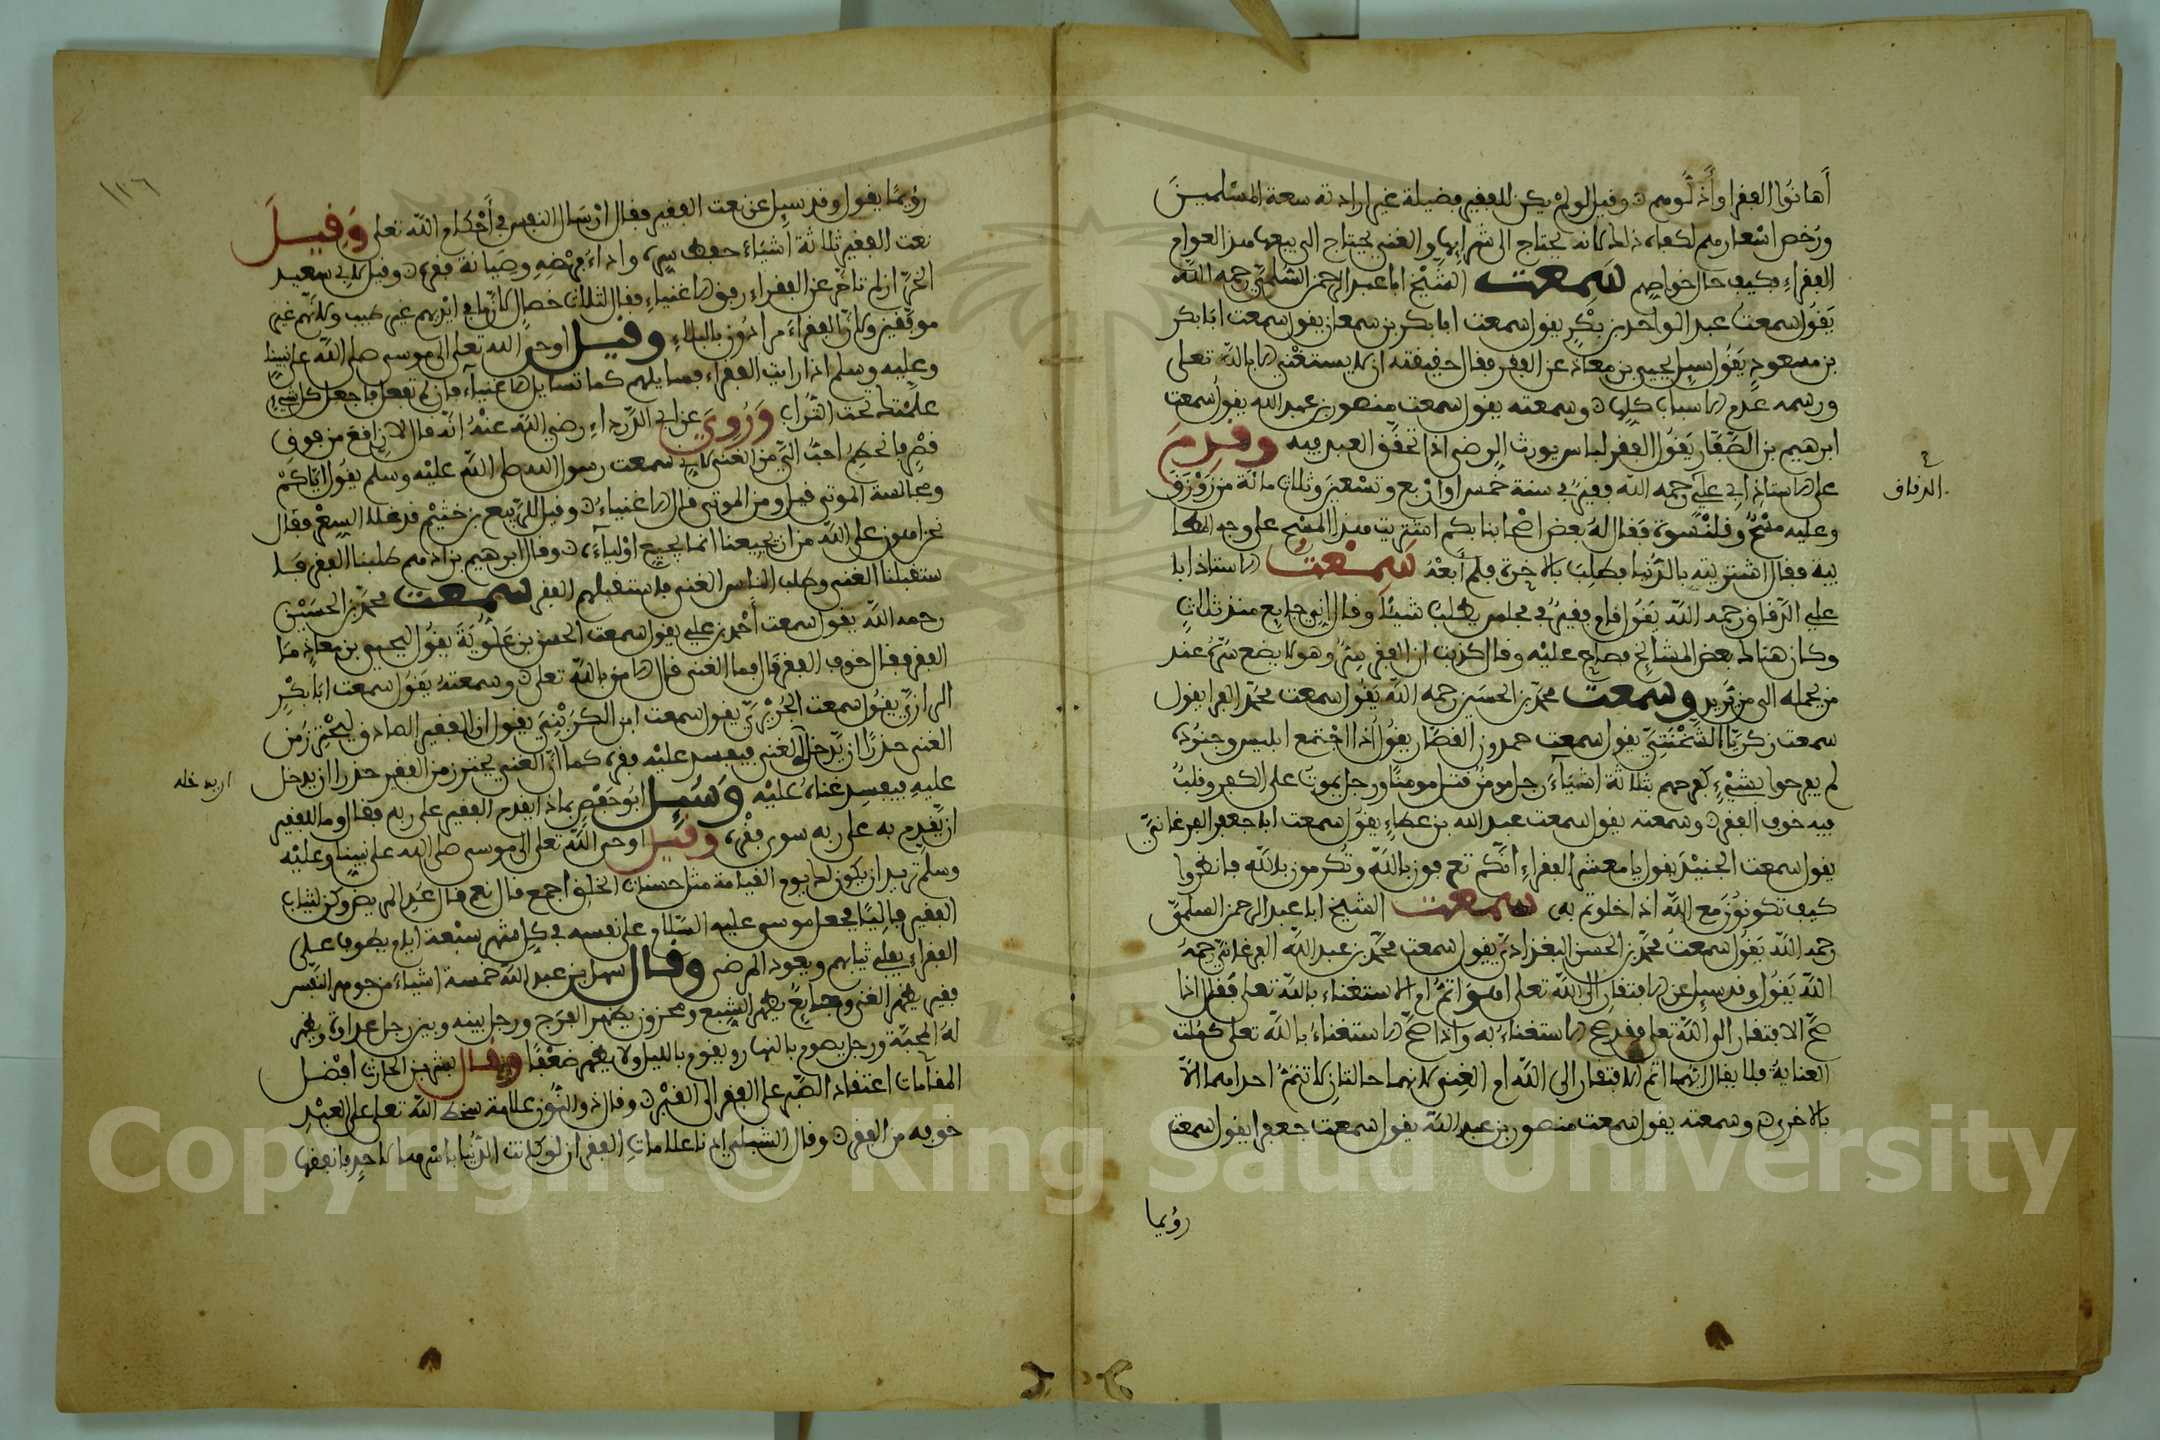 أهانوا الفقرا وأذلوهم وقيل لو لم يكن للفقير فضيلة غير ارادته سعة المسلمين
ورخص اسعارهم لكفاه ذلك لانه يحتاج الى شرايها والغني يحتاج الى بيعها هذا لعوام
الفقراء فكيف حال خواصهم سمعت الشيخ ابا عبد الرحمن السلمي رحمه الله
يقول سمعت عبد الواحد بن بكر يقول سمعت ابا بكر بن سمعان يقول سمعت ابا بكر
بن مسعود يقول سيل يحيى بن معاذ عن الفقر فقال حقيقته ان لا يستغني الا بالله تعلى
ورسمه عدم الاسباب كلها وسمعته يقول سمعت منصور بن عبد الله يقول سمعت
ابرهيم بن القصار يقول الفقر لباس يورث الرضى اذا تحقق العبد فيه وقدم
على الاستاذ ابي علي رحمه الله فقير في سنة خمس او اربع وتسعين وثلاث مائة من زوزن
وعليه مسح وقلنسوة فقال له بعض اصحابنا بكم اشتريت هذا المسح على وجه المطا
يبة فقال اشتريته بالدنيا فطلب بالاخرة فلم أبعه سمعت الاستاذ ابا
علي الدقاق رحمه الله يقول قام فقير في مجلس يطلب شيئا وقال اني جايع منذ ثلاث
وكان هناك بعض المشايخ فصاح عليه وقال كذبت ان الفقر سر وهو لا يضع سره عند
من يحمله الى من يريد وسمعت محمد بن الحسين رحمه الله يقول سمعت محمد الفرا يقول
سمعت زكريا النخشبي يقول سمعت حمدون القصار يقول اذا اجتمع ابليس وجنوده
لم يفرحوا بشيء كفرحهم بثلاثة اشياء رجل مومن قتل مومنا ورجل يموت على الكفر وقلب
فيه خوف الفقر وسمعته يقول سمعت عبد الله بن عطاء يقول سمعت ابا جعفر الفرغاني
يقول سمعت الجنيد يقول يا معشر الفقراء انكم تعرفون بالله وتكرمون بالله فانظروا
كيف تكونون مع الله اذا خلوتم به سمعت الشيخ ابا عبد الرحمن السلمي
رحمه الله يقول سمعت محمد بن الحسن البغدادي يقول سمعت محمد بن عبد الله الفرغاني رحمه
الله يقول وقد سيل عن الافتقار الى الله تعلى اهو اتم ام الاستغناء بالله تعلى فقال اذا
صح الافتقار الى الله تعلى فقد صح الاستغناء به واذا صح الاستغناء بالله تعلى كملت
العناية فلا يقال ايهما اتم الافتقار الى الله ام الغنى لانهما حالتان لا تتم احداهما الا
بالاخرى وسمعته يقول سمعت منصور بن عبد الله يقول سمعت جعفرا يقول سمعت
رؤيما
الدقاق
١٢٦
رؤيما يقول وقد سيل عن نعت الفقير فقال ارسال النفس في أحكام الله تعلى وقيل
نعت الفقير ثلاثة اشياء حفظ سره واداء فرضه وصيانة فقره وقيل لابي سعيد
الخراز لم تاخر عن الفقراء رفق الاغنياء فقال لثلاث خصال لان ما في ايديهم غير طيب ولانهم غير
موفقين ولان الفقراء مرادون بالبلاء وقيل اوحى الله تعلى الى موسى صلى الله على نبينا
وعليه وسلم اذا رايت الفقراء فسايلهم كما تسايل الاغنياء فان لم تفعل فاجعل كل شيء
علمتك تحت التراب وروي عن ابي الدرداء رضي الله عنه انه قال لان اقع من فوق
قصر فانحطم احب الي من الغنى لاني سمعت رسول الله صلى الله عليه وسلم يقول اياكم
ومجالسة الموتى قيل ومن الموتى قال الاغنياء وقيل للربيع بن خثيم قد غلا السعر فقال
نحن اهون على الله من ان يجيعنا انما يجيع اولياءه وقال ابرهيم بن ادهم طلبنا الفقر فا
ستقبلنا الغنى وطلب الناس الغنى فاستقبلهم الفقر سمعت محمد بن الحسين
رحمه الله يقول سمعت أحمد بن علي يقول سمعت الحسن بن علوية يقول ليحيى بن معاذ ما
الفقر فقال خوف الفقر قال فما الغنى قال الامن بالله تعلى وسمعته يقول سمعت ابا بكر
الرازي يقول سمعت الجريري يقول سمعت ابن الكريني يقول ان الفقير الصادق ليحترز من
الغنى حذرا ان يدخل الغنى فيفسد عليه فقره كما ان الغني يحترز من الفقير حذرا ان يدخل
عليه فيفسد غناه عليه وسيل ابو حفص بماذا يقدم الفقير على ربه فقال وما للفقير
ان يقدم به على ربه سوى فقره وقيل اوحى الله تعلى الى موسى صلى الله على نبينا وعليه
وسلم تريد ان يكون لك يوم القيامة مثل حسنات الخلق اجمع قال نعم قال عد المريض وكن لثياب
الفقير فاليا فجعل موسى عليه السلام على نفسه في كل شهر سبعة ايام يطوف على
الفقراء يفلي ثيابهم ويعود المرضى وقال سهل بن عبد الله خمسة اشياء من جوهر النفس
فقير يظهر الغنى وجايع يظهر الشبع ومحزون يظهر الفرح ورجل بينه وبين رجل عداوة ويظهر
له المحبة ورجل يصوم بالنهار ويقوم بالليل ولا يظهر ضعفا وقال بشر بن الحارث افضل
المقامات اعتقاد الصبر على الفقر الى القبر وقال ذو النون علامة سخط الله تعلى على العبد
خوفه من الفقر وقال الشبلي ادنا علامات الفقر ان لو كانت الدنيا باسرها لاحد فانفقها
Copyright © King Saud University
1957